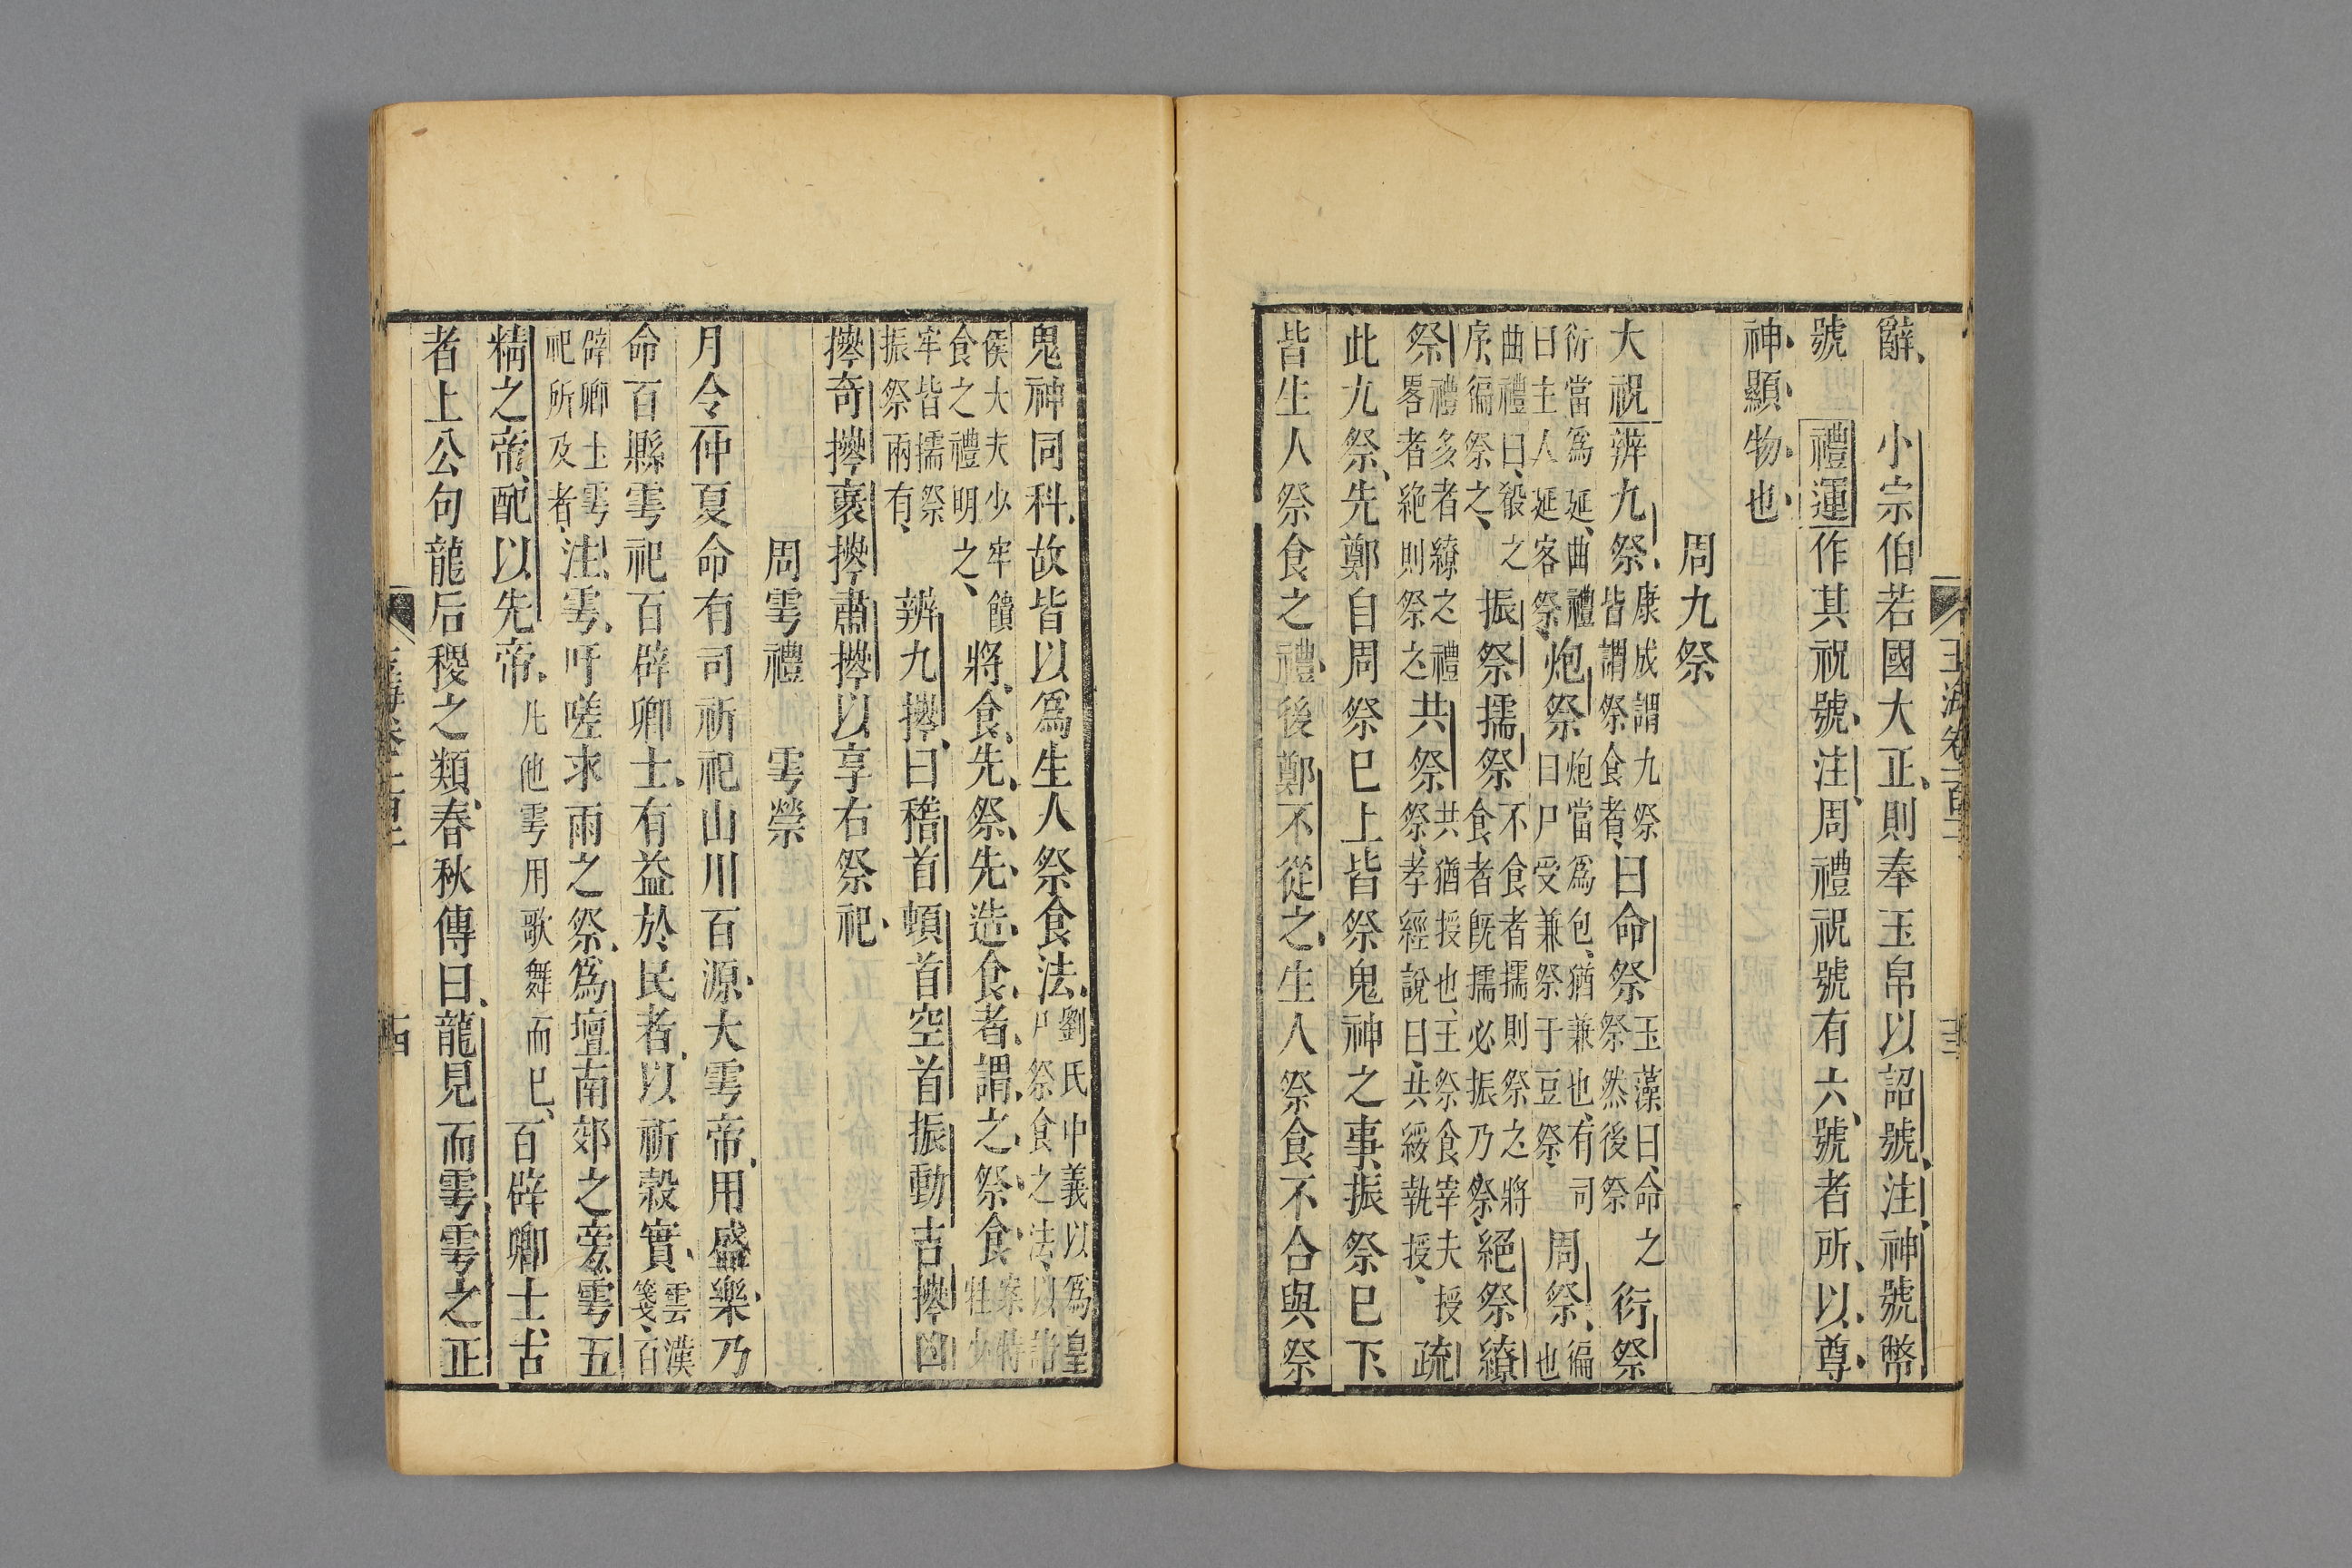 辭小宗伯若國大正則奉玉帛以詔號注神號幣
號禮運作其祝號注周禮祝號有六號者所以尊
神顯物也
周九祭
大祝辨九祭康成謂九祭皆謂祭食者曰命祭玉藻曰命之祭祭然後祭衍祭
衍當爲延曲禮曰主人延客祭炮祭炮當爲包猶兼也有司曰尸受兼祭于豆祭周祭徧也
曲禮曰殽之序徧祭之振祭擩祭不食者擩則祭之將食者既擩必振乃祭絕祭繚
祭禮多者繚之禮畧者絶則祭之共祭共猶授也王祭食宰夫授祭孝經說曰共綏執授疏
此九祭先鄭自周祭已上皆祭鬼神之事振祭已下
皆生人祭食之禮後鄭不從之生人祭食不合與祭
鬼神同科故皆以爲生人祭食法劉氏中義以爲皇尸祭食之法以諸
侯大夫少牢饋食之禮明之將食先祭先造食者謂之祭食案特牲少
牢皆擩祭振祭兩有辨九㩓曰稽首頓首空首振動吉㩓凶
㩓奇㩓褒㩓肅㩓以享右祭祀
周雩禮 雩禜
月令仲夏命有司祈祀山川百源大雩帝用盛樂乃
命百縣雩祀百辟卿士有益於民者以祈穀實雲漢箋百
辟卿士雩祀所及者注雩吁嗟求雨之祭爲壇南郊之旁雩五
精之帝配以先帝凡他雩用歌舞而已百辟卿士古
者上公句龍后稷之類春秋傳曰龍見而雩雩之正